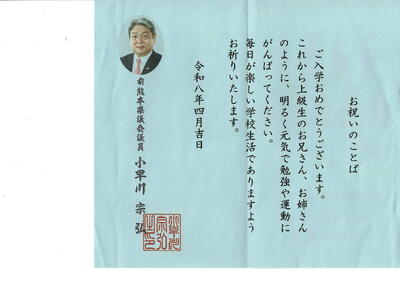 お祝いのことば
ご入学おめでとうございます。
これから上級生のお兄さん、お姉さん
のように、明るく元気で勉強や運動に
がんばってください。
毎日が楽しい学校生活でありますよう
お祈りいたします。
令和八年四月吉日
前熊本県議会議員 小早川 宗弘